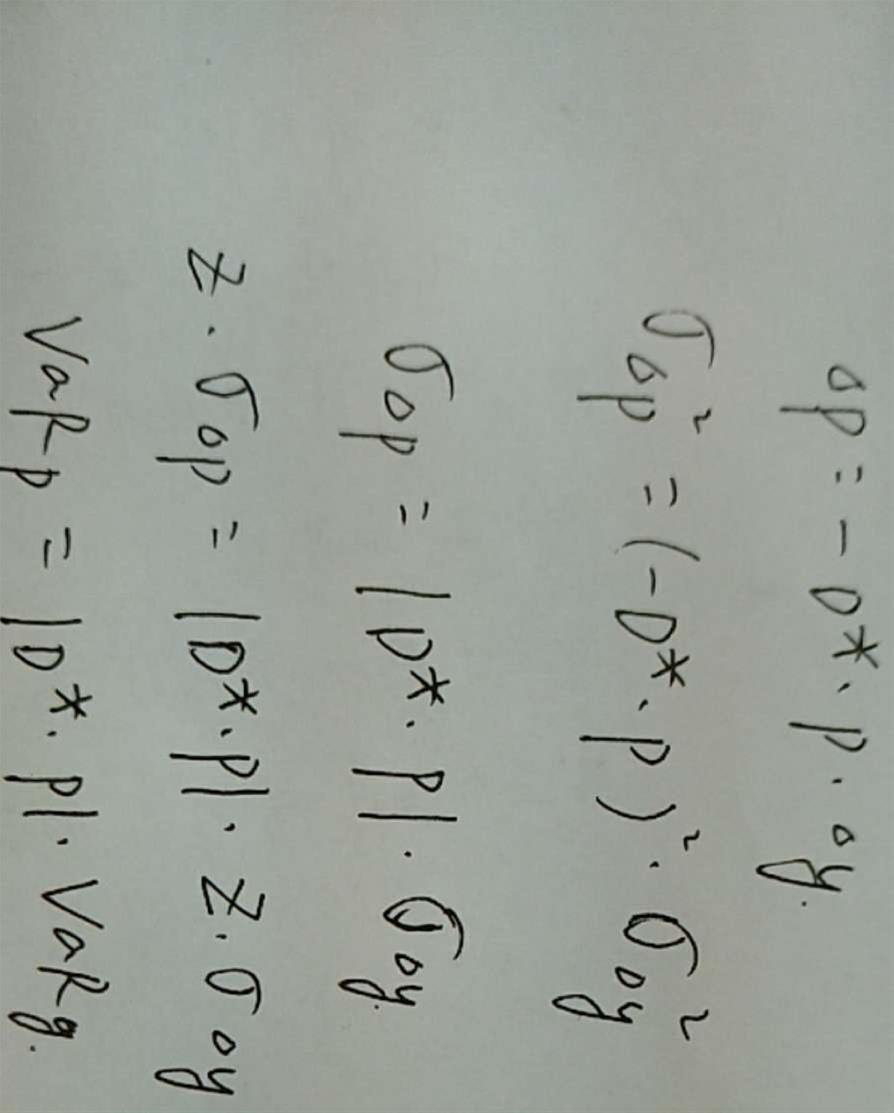 ΔP = - D* · P · Δy.
σ²ΔP = (- D* · P)² · σ²Δy
σΔP = |D* · P| · σΔy.
Z · σΔP = |D* · P| · Z · σΔy
VaRp = |D* · P| · VaRy.